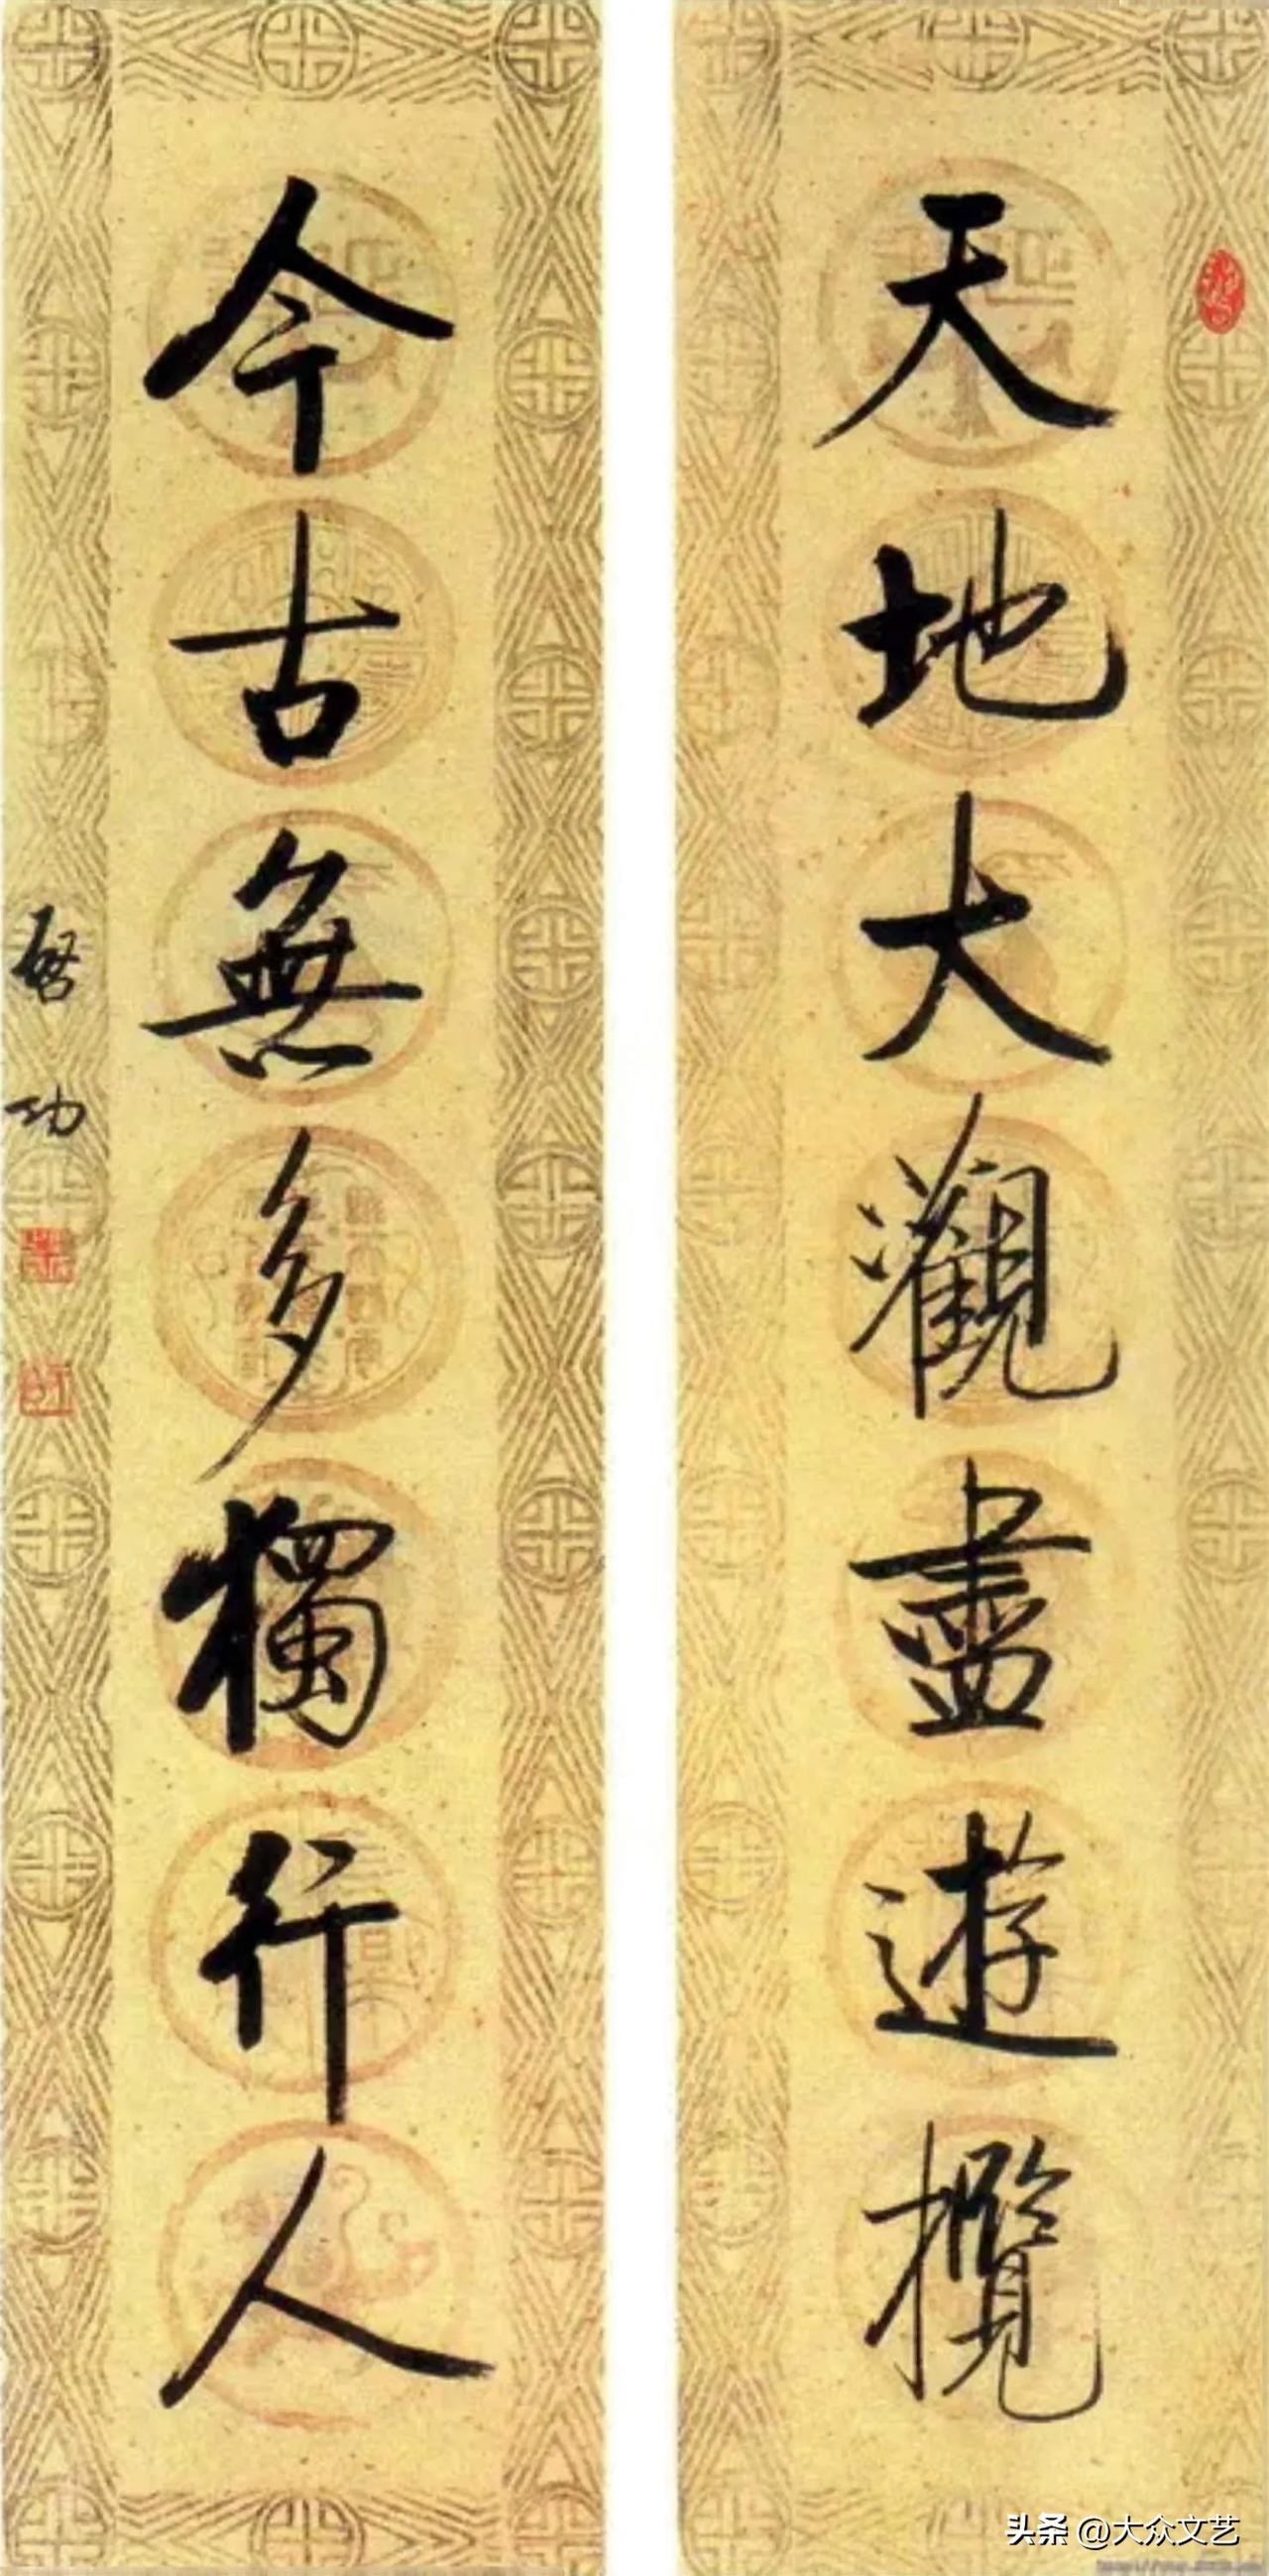 天地大觀盡遊攬
今古無多獨行人
啓功
头条 @大众文艺